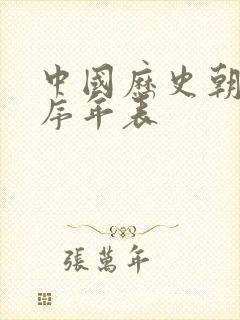 中國歷史朝
序年表
張萬年